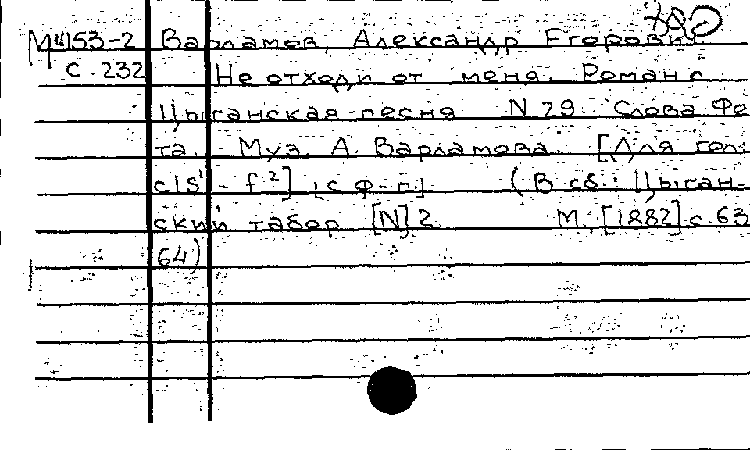 М 4153-2 Варламов, Александр Егорович
с. 232 Не отходи от меня. Романс
Цыганская песня N 29. Слова Фе
та. Муз. А. Варламова. [Для гол.
[с ф-п.] (В сб.: Цыган-
ский табор [N] 2. М. [1882] с. 63
64)